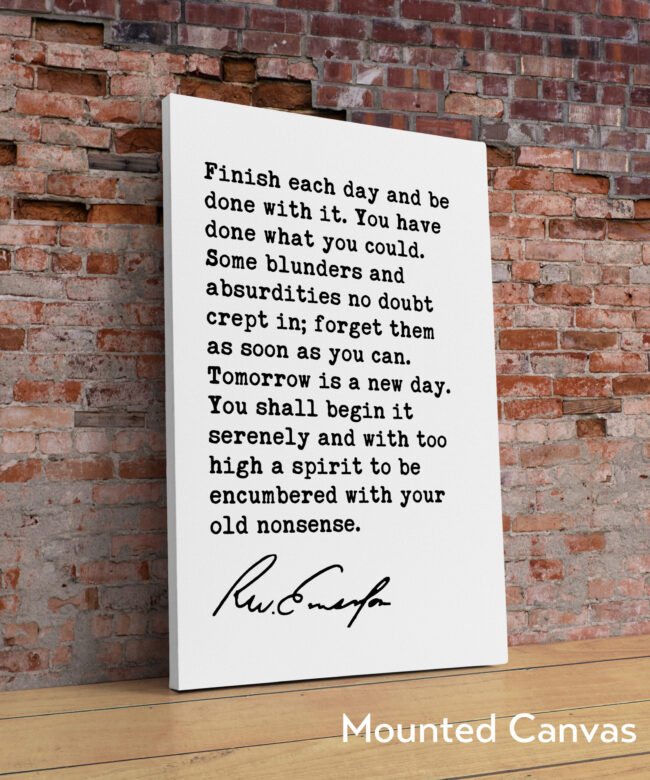 Finish each day and be
done with it. You have
done what you could.
Some blunders and
absurdities no doubt
crept in; forget them
as soon as you can.
Tomorrow is a new day.
You shall begin it
serenely and with too
high a spirit to be
encumbered with your
old nonsense.
R.W. Emerson
Mounted Canvas